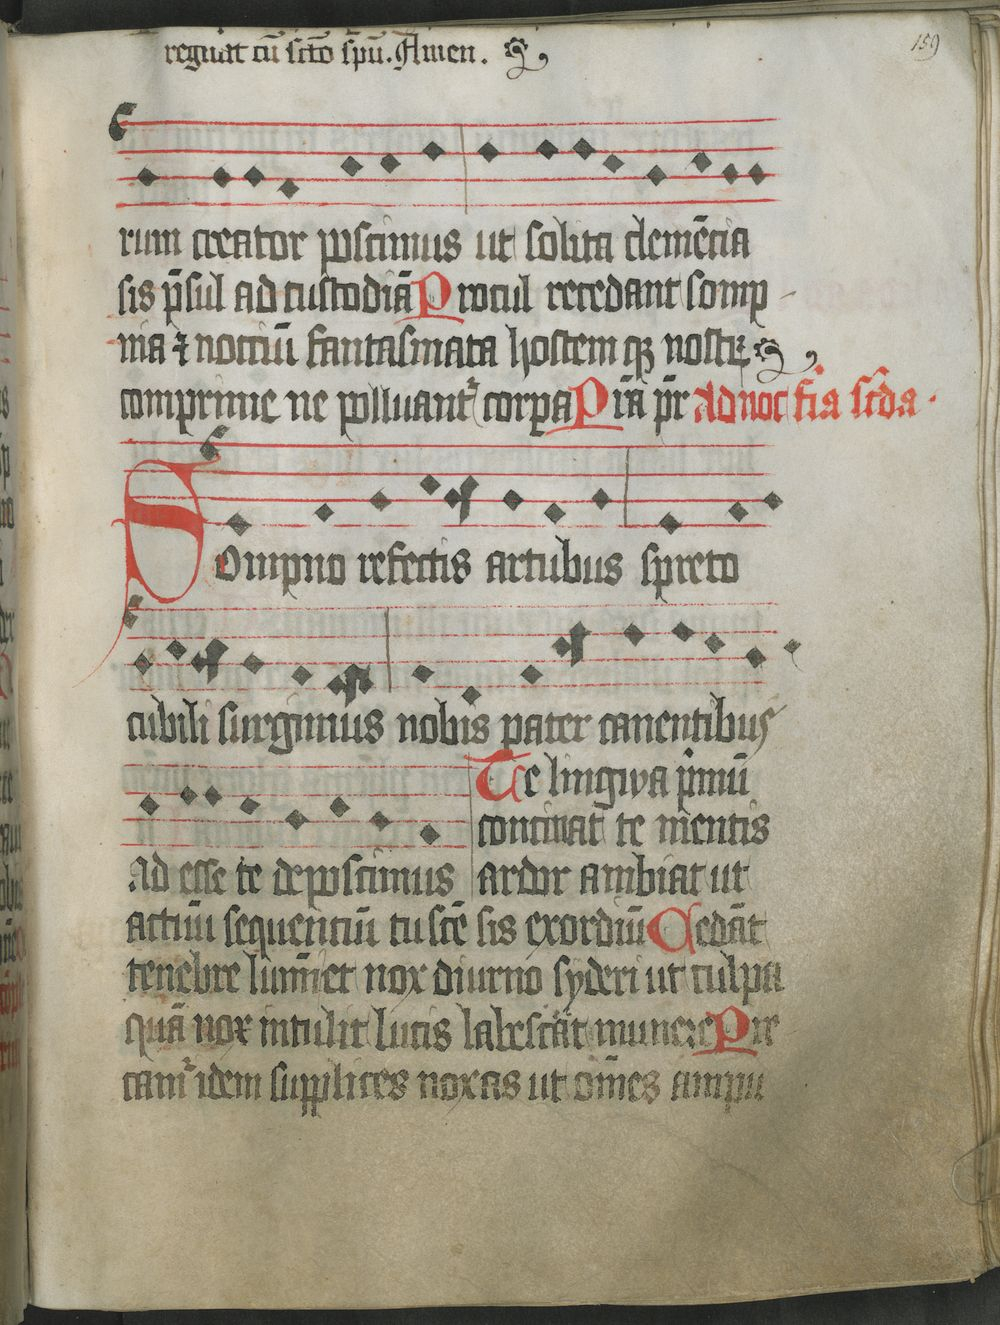 regnāt cū sctō spū. Amen.
159
rum creator poscimus ut solita clemēcia
sis p̄sul ad custodiā Procul recedant somp
nia ⁊ noctiū fantasmata hostem qꝫ nostꝝ
comprime ne polluant᷑ corpa P iā pr̄ Ad noc fīa scda.
Sompno refectis artubus spreto
cubili surgimus nobis pater canentibus
Te lingwa p̄mū
concinat te mentis
ad esse te deposcimus ardor ambiat ut
actuū sequenciū tu scē sis exordiū Cedāt
tenebre lumīet nox diurno syderi ut culpa
quā nox intulit lucis labescāt munere Pre
cam᷑ idem supplices noxas ut om̄es ampu